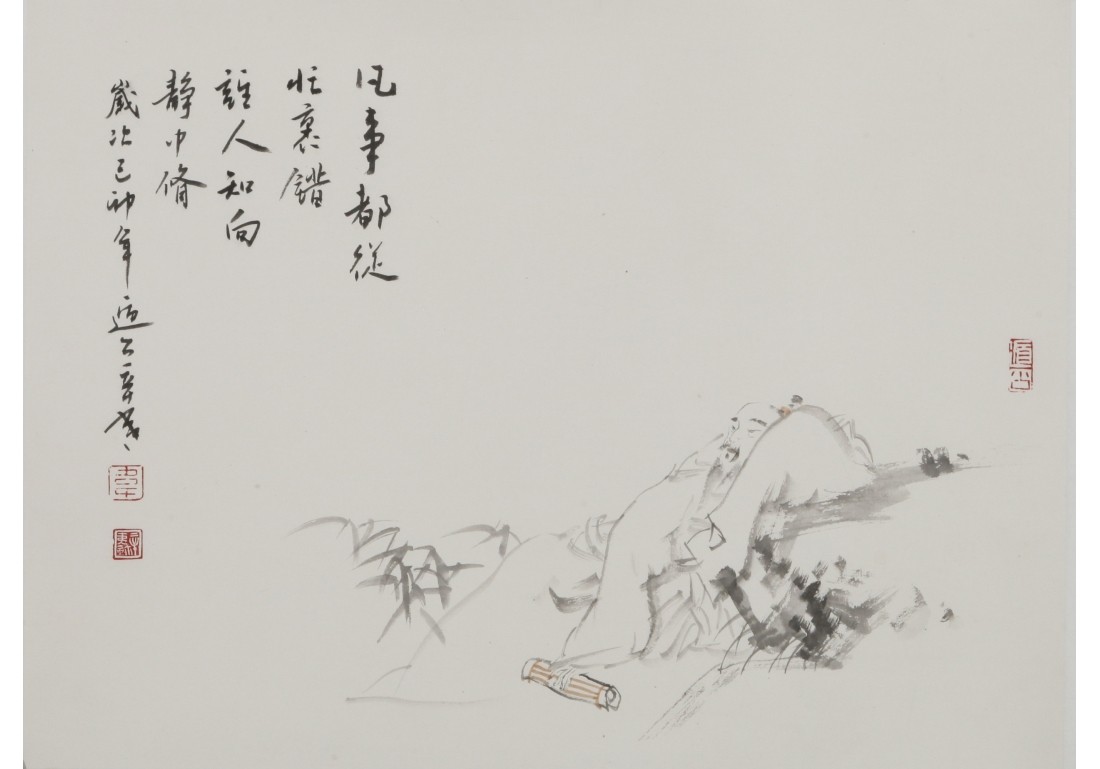 凡事都從
忙裏錯
誰人知向
靜中脩
歲次己卯年